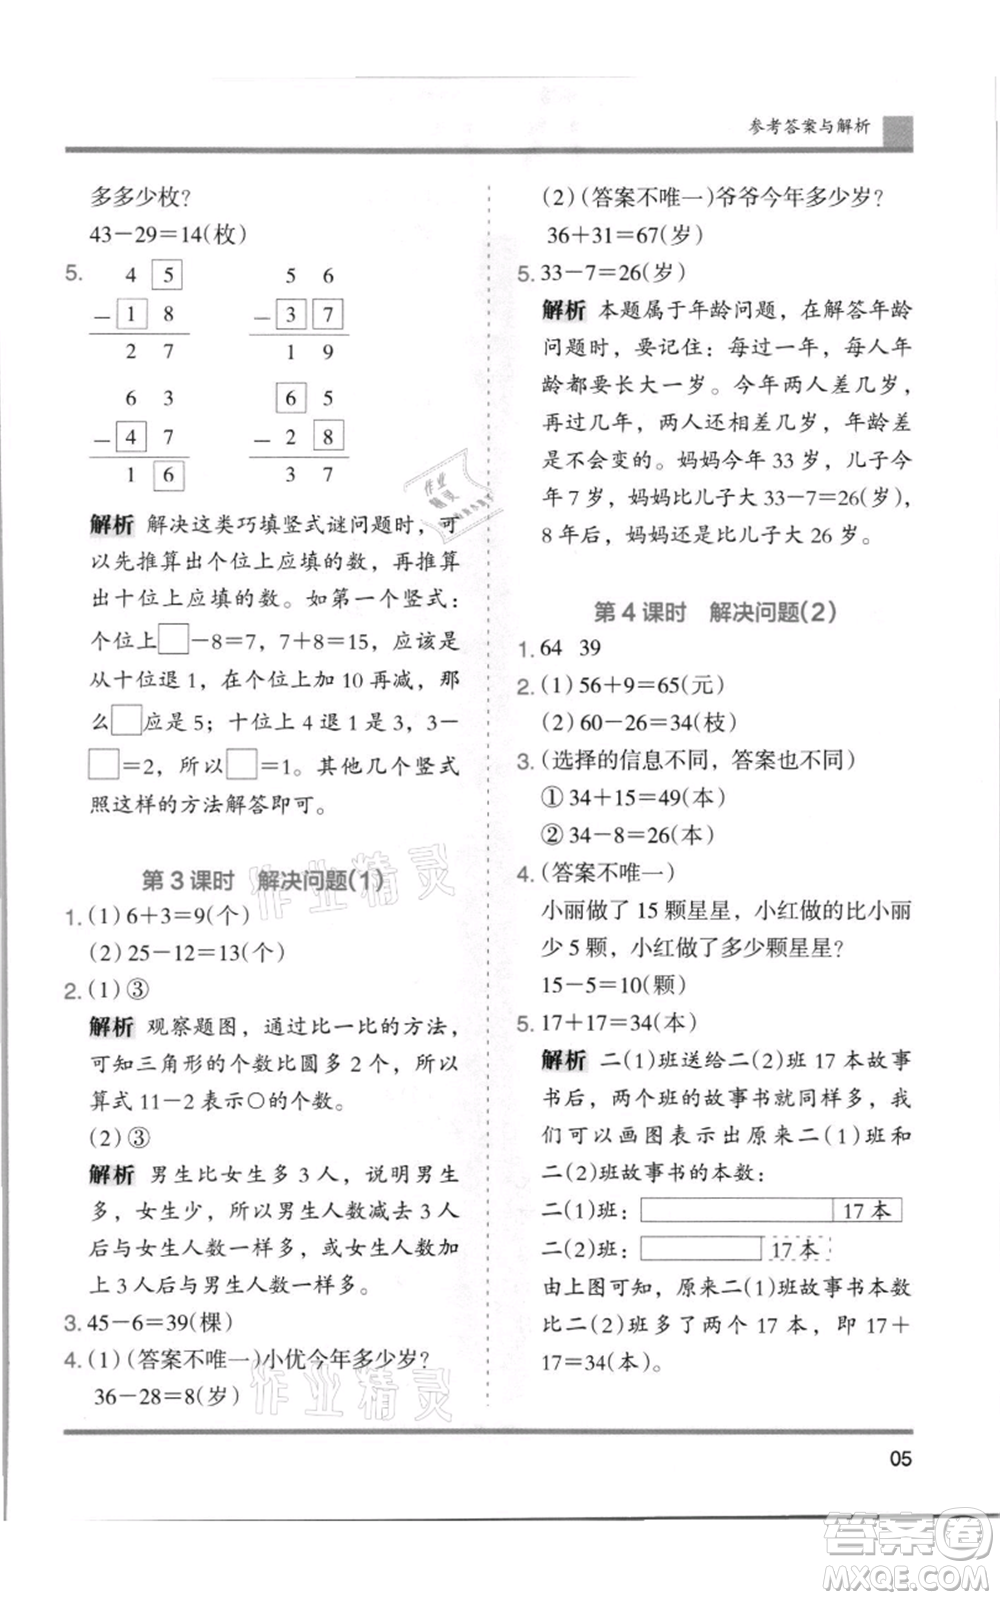 参考答案与解析
多多少枚？
43－29＝14(枚)
5. 4 5    5 6
－ 1 8    － 3 7
2 7    1 9
6 3    6 5
－ 4 7    － 2 8
1 6    3 7
解析 解决这类巧填竖式谜问题时，可
以先推算出个位上应填的数，再推算
出十位上应填的数。如第一个竖式：
个位上□－8＝7，7＋8＝15，应该是
从十位退 1，在个位上加 10 再减，那
么□应是 5；十位上 4 退 1 是 3，3－
□＝2，所以□＝1。其他几个竖式
照这样的方法解答即可。
第 3 课时 解决问题(1)
1. (1) 6＋3＝9(个)
(2) 25－12＝13(个)
2. (1) ③
解析 观察题图，通过比一比的方法，
可知三角形的个数比圆多 2 个，所以
算式 11－2 表示○的个数。
(2) ③
解析 男生比女生多 3 人，说明男生
多，女生少，所以男生人数减去 3 人
后与女生人数一样多，或女生人数加
上 3 人后与男生人数一样多。
3. 45－6＝39(棵)
4. (1) (答案不唯一)小优今年多少岁？
36－28＝8(岁)
(2) (答案不唯一)爷爷今年多少岁？
36＋31＝67(岁)
5. 33－7＝26(岁)
解析 本题属于年龄问题，在解答年龄
问题时，要记住：每过一年，每人的年
龄都要长大一岁。今年两人差几岁，
再过几年，两人还相差几岁，年龄差
是不会变的。妈妈今年 33 岁，儿子今
年 7 岁，妈妈比儿子大 33－7＝26(岁)，
8 年后，妈妈还是比儿子大 26 岁。
第 4 课时 解决问题(2)
1. 64 39
2. (1) 56＋9＝65(元)
(2) 60－26＝34(枝)
3. (选择的信息不同，答案也不同)
① 34＋15＝49(本)
② 34－8＝26(本)
4. (答案不唯一)
小丽做了 15 颗星星，小红做的比小丽
少 5 颗，小红做了多少颗星星？
15－5＝10(颗)
5. 17＋17＝34(本)
解析 二(1)班送给二(2)班 17 本故事
书后，两个班的故事书就同样多，我
们可以画图表示出原来二(1)班和
二(2)班故事书的本数：
二(1)班： 17 本
二(2)班： 17 本
由上图可知，原来二(1)班故事书本数
比二(2)班多了两个 17 本，即 17＋
17＝34(本)。
05
作业精灵
作业精灵
作业精灵
答案卷
MXQE.COM